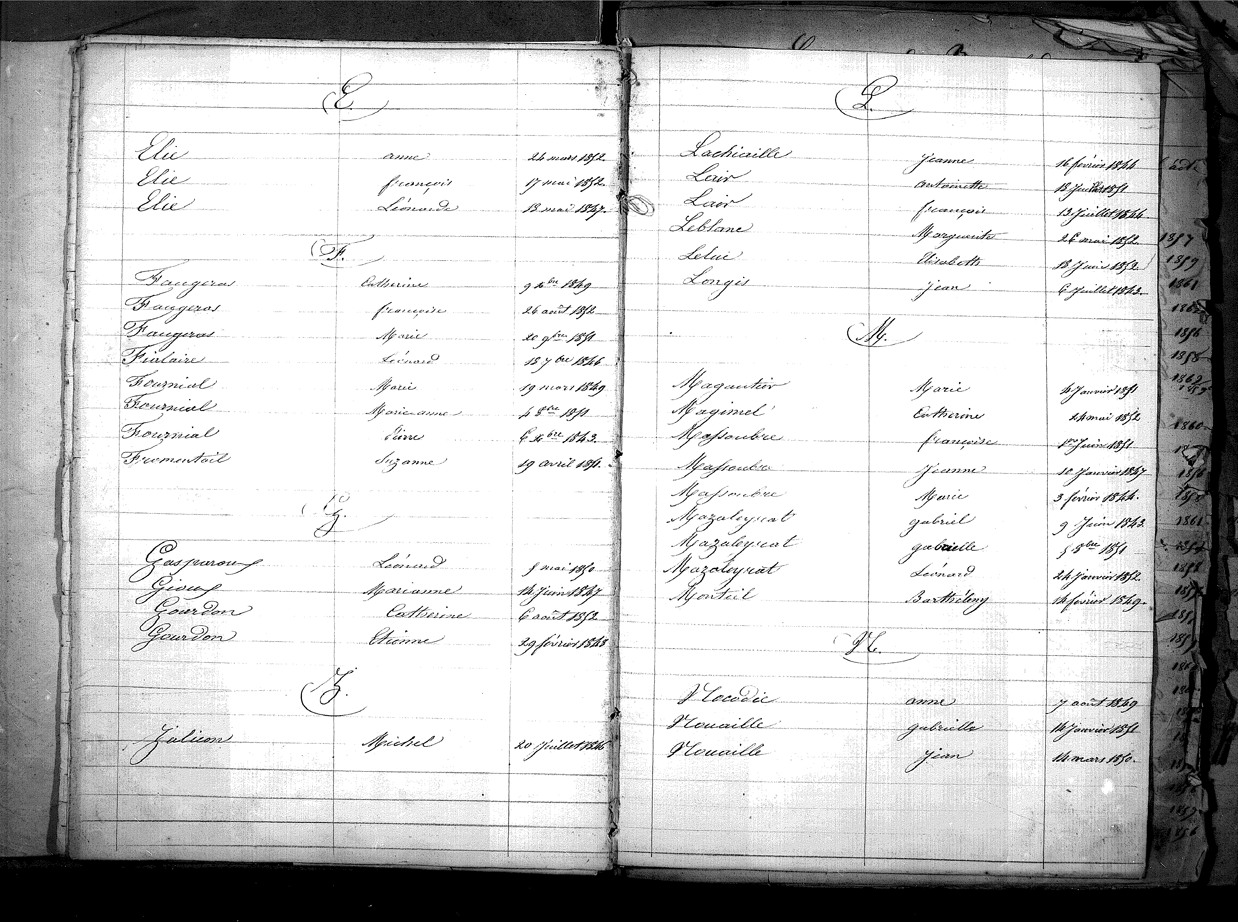 E.
Elie anne 24 mars 1852
Elie françois 17 mai 1852.
Elie Léonarde 13 mai 1847.
F.
Faugeras Catherine 9 Xbre 1849
Faugeras françoise 26 août 1852
Faugeras Marie 20 9bre 1851
Fialaire Léonard 18 7bre 1846
Fournial Marie 19 mars 1849
Fournial Marie-anne 4 8bre 1851
Fournial Pierre 6 Xbre 1843.
Fromenteil Suzanne 19 avril 1851.
G.
Gasparoux Léonard 5 mai 1850
Gioux Marianne 14 Juin 1847
Gourdon Catherine 6 août 1852
Gourdon Etienne 29 février 1848
J.
Jalicon Michel 20 Juillet 1846
L.
Lachicaille Jeanne 16 février 1844
Lair antoinette 1851
Lair françois 13 Juillet 1846
Leblanc Marguerite 26 mai 1852
Elisabeth 18 Juin 1852
Longis Jean 6 Juillet 1843
M.
Magautier Marie 4 Janvier 1851
Magimel Catherine 24 mai 1852
Massoubre françoise 1er Juin 1851
Massoubre Jeanne 10 Janvier 1847
Massoubre Marie 3 février 1844.
Mazaleyrat gabriel 9 Juin 1843
Mazaleyrat gabrielle 5 8bre 1851
Mazaleyrat Léonard 24 Janvier 1852
Monteil Barthélemy 14 février 1849.
N.
Nocodie anne 7 août 1849
Nouaille gabrielle 14 Janvier 1851
Nouaille Jean 14 mars 1850.
1857
1859
1861
1856
1858
1862
1860